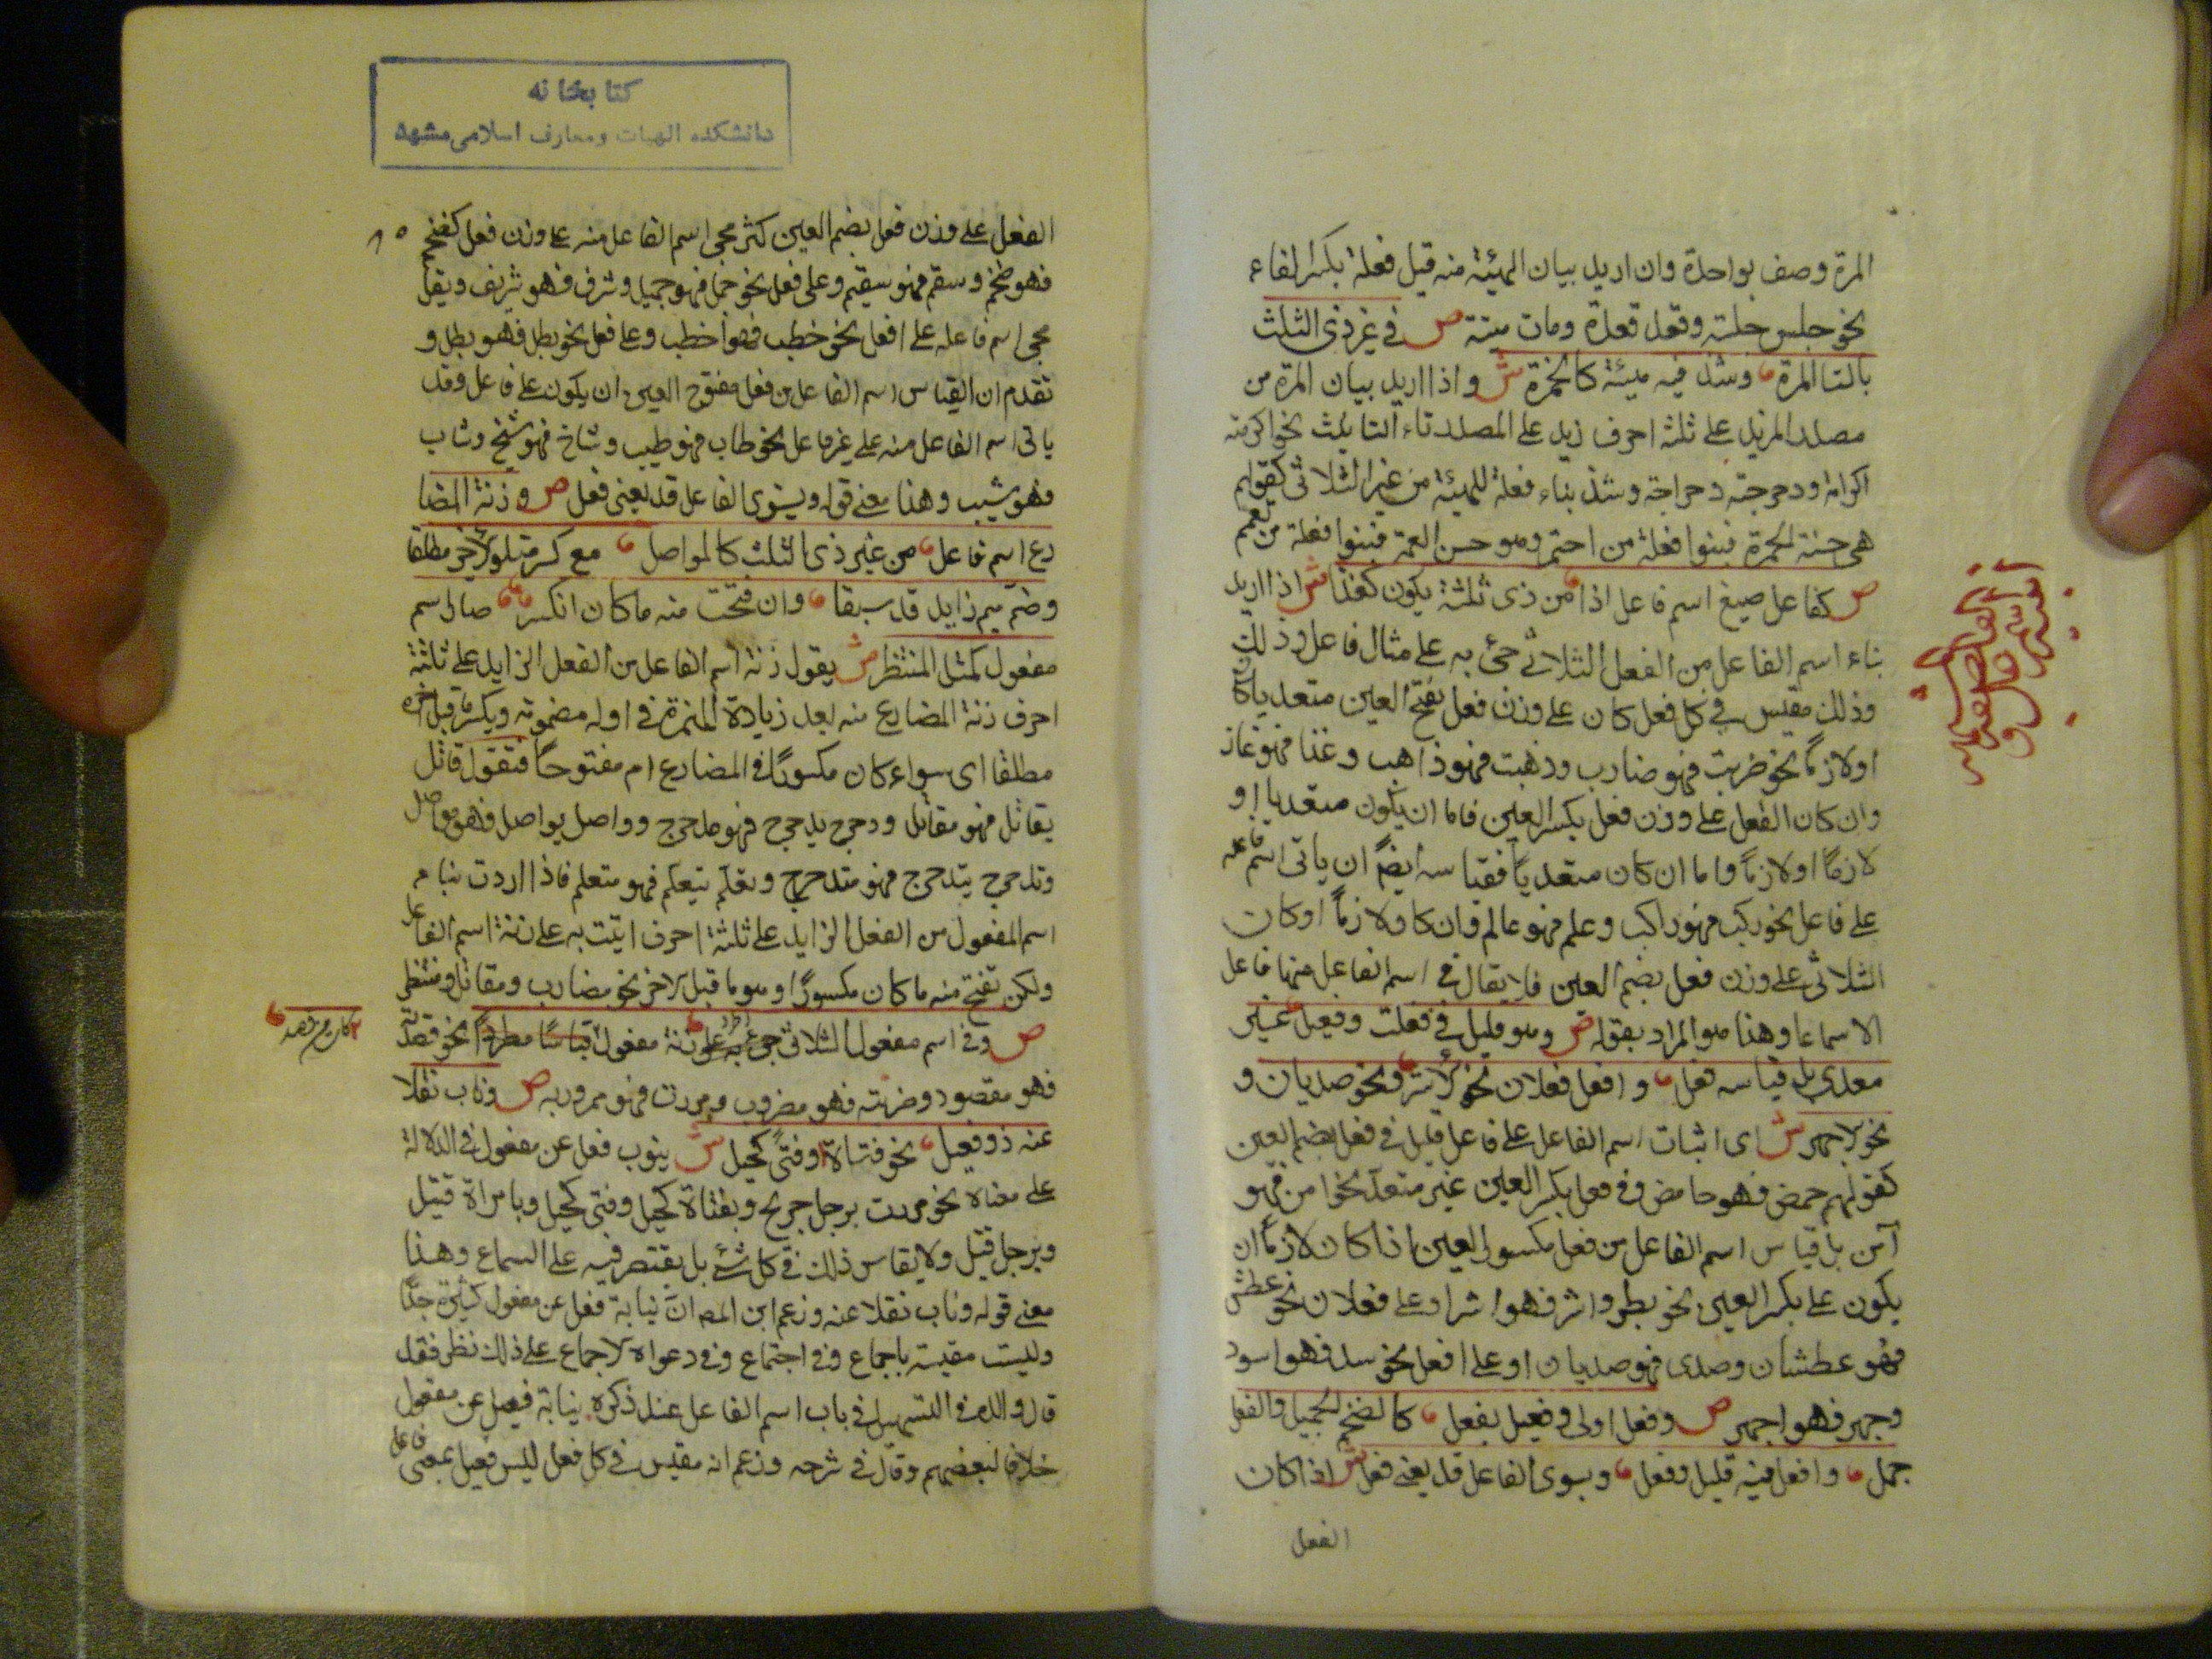 المرة وصف بواحدة وان اريد بيان الهيئة منه قيل فعلة بكسر الفاء
نحو جلس جلسة وقعد قعدة ومات ميتة ص في غير ذي الثلث
بالتا المرة وشذ فيه هيئة كالخمرة ش واذا اريد بيان المرة من
مصدر المزيد على ثلثة احرف زيد على المصدر تاء التانيث نحو اكرمته
اكرامة ودحرجته دحراجة وشذ بناء فعلة للهيئة من غير الثلاثي كقولهم
هي حسنة الخمرة فبنوا فعلة من اختمر وهو حسن العمة فبنوا فعلة من تعمم
ص كفاعل صيغ اسم فاعل اذا من ذي ثلثة يكون كغذا ش اذا اريد
بناء اسم الفاعل من الفعل الثلاثي جئ به على مثال فاعل وذلك
وذلك مقيس في كل فعل كان على وزن فعل بفتح العين متعديا كان
او لازما نحو ضربت فهو ضارب وذهبت فهو ذاهب وغذا فهو غاذ
وان كان الفعل على وزن فعل بكسر العين فاما ان يكون متعديا او
لازما او لازما واما ان كان متعديا فقياسه ايضا ان ياتي اسم فاعله
على فاعل نحو ركب فهو راكب وعلم فهو عالم وان كا ولازما او كان
الثلاثي على وزن فعل بضم العين فلا يقال في اسم الفاعل منها فاعل
الا سماعا وهذا هو المراد بقوله ص وهو قليل في فعلت وفعل غير
معدي بل قياسه فعل وافعل فعلان نحو اشر ونحو صديان و
نحو الاجهر ش اي اثبات اسم الفاعل على فاعل قليل في فعل بضم العين
كقولهم حمض فهو حامض وفي فعل بكسر العين غير متعد نحو امن فهو
آمن بل قياس اسم الفاعل من فعل مكسور العين اذا كان لازما ان
يكون على بكسر العين نحو بطر واشر فهو اشر او على فعلان نحو عطش
فهو عطشان وصدى فهو صديان او على افعل نحو سد فهو اسود
وجهر فهو اجهر ص وفعل اولى وفعيل بفعل كالضخم والجميل والفعل
جمل وافعل فيه قليل وفعل وبسوى الفاعل قد يغني فعل ش اذا كان
الفعل
اسم الفاعل
و
اسم المفعول
كتابخانه
دانشكده الهيات ومعارف اسلامى مشهد
٨٥
الفعل على وزن فعل بضم العين كثر مجئ اسم الفاعل منه على وزن فعل كضخم
فهو ضخم وسقم فهو سقيم وعلى فعيل نحو جمل فهو جميل وشرف فهو شريف ويقل
مجئ اسم فاعله على افعل نحو خطب فهو اخطب وعلى فعل نحو بطل فهو بطل و
تقدم ان القياس اسم الفاعل من فعل مفتوح العين ان يكون على فاعل وقد
ياتي اسم الفاعل منه على غير فاعل نحو طاب فهو طيب وشاخ فهو شيخ وشاب
فهو شيب وهذا معنى قوله وبسوى الفاعل قد يغني فعل ص وزنة المضا
رع اسم فاعل من غير ذي الثلث كالمواصل مع كسر متلو الاخير مطلقا
وضم ميم زايد قد سبقا وان فتحت منه ما كان انكسر صار اسم
مفعول كمثل المنتظر ش يقول زنة اسم الفاعل من الفعل الزايد على ثلثة
احرف زنة المضارع منه بعد زيادة الميم في اوله مضمومة ويكسر ما قبل اخره
مطلقا اي سواء كان مكسورا في المضارع ام مفتوحا فتقول قاتل
يقاتل فهو مقاتل ودحرج يدحرج فهو مدحرج وواصل يواصل فهو مواصل
وتدحرج يتدحرج فهو متدحرج وتعلم يتعلم فهو متعلم فاذا اردت بناء
اسم المفعول من الفعل الزايد على ثلثة احرف اتيت به على زنة اسم الفاعل
ولكن تفتح منه ما كان مكسورا وهو ما قبل الاخر نحو مضارب ومقاتل ومنتظر
ص وفي اسم مفعول الثلاثي جئ به على زنة مفعول قياسا مطردا نحو قصدته
فهو مقصود وضربته فهو مضروب ومررت فهو ممرور به ص وناب نقلا
عنه ذو فعيل نحو فتاة او فتى كحيل ش ينوب فعيل عن مفعول في الدلالة
على معناه نحو مررت برجل جريح وبفتاة كحيل وفتى كحيل وبامراة قتيل
وبرجل قتيل ولا يقاس ذلك في كل شئ بل يقتصر فيه على السماع وهذا
معنى قوله وناب نقلا عنه وزعم ابن المص ان نيابة فعيل عن مفعول كثيرة جدا
وليست مقيسة باجماع وفي اجتماع وفي دعواه الاجماع على ذلك نظر فقد
قال والده في التسهيل في باب اسم الفاعل عند ذكره نيابة فعيل عن مفعول
خلافا لبعضهم وقال في شرحه وزعم انه مقيس في كل فعل ليس فعيل بمعنى فاعل